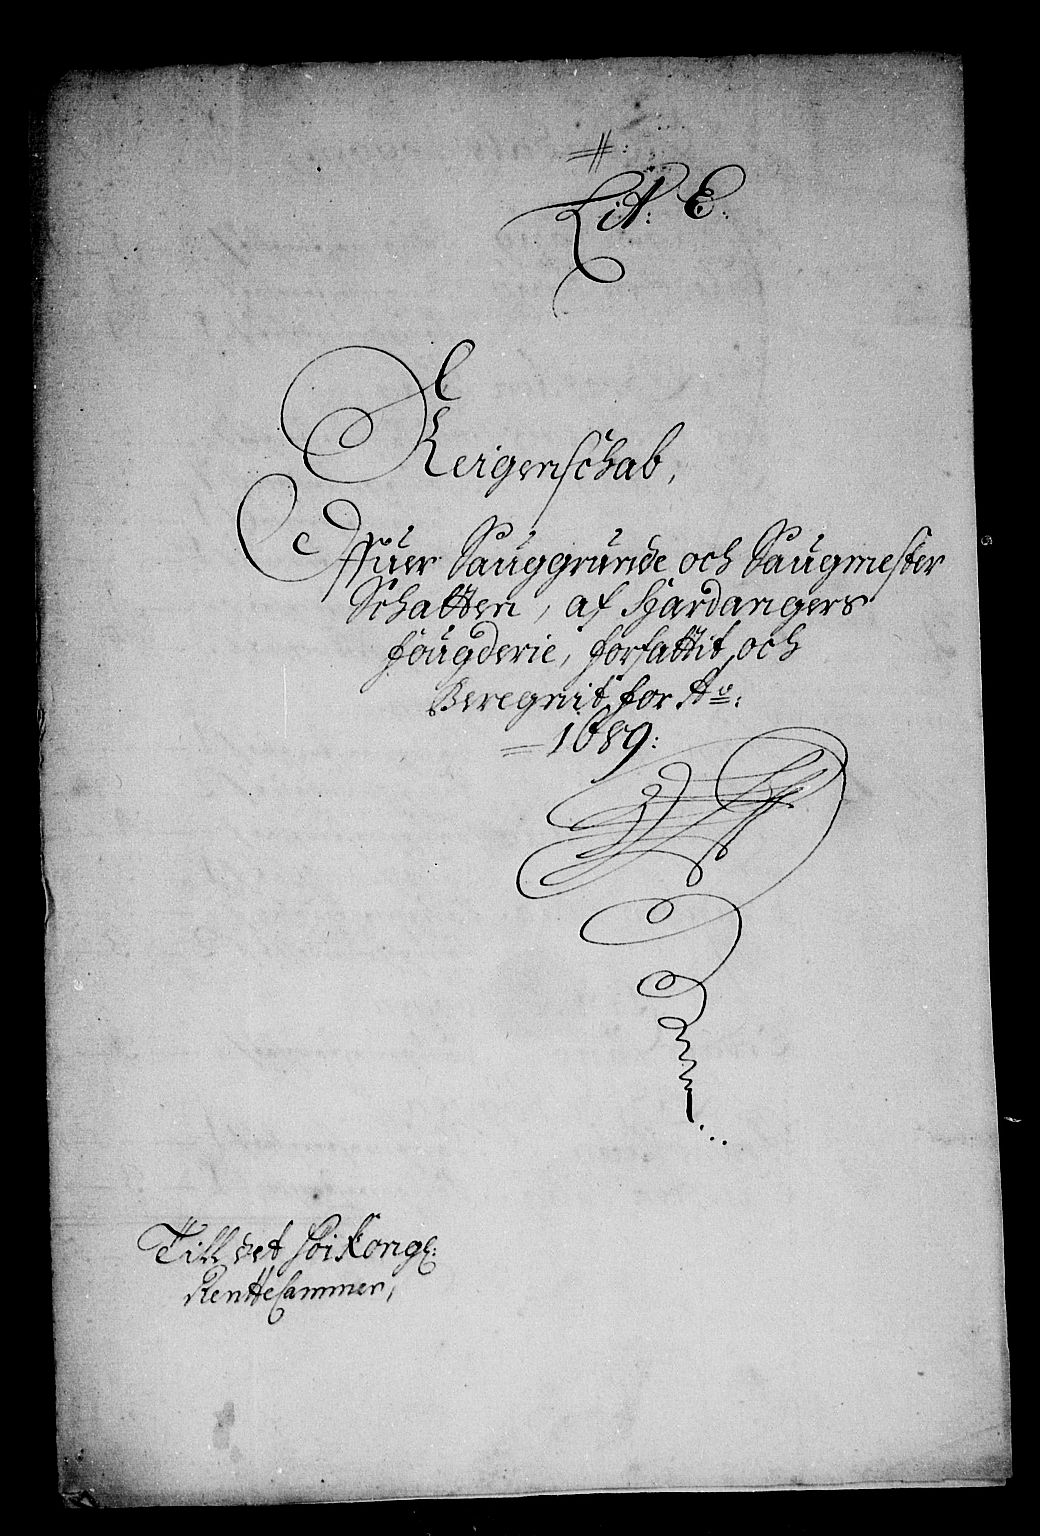 #:
Lit: E:
Reigenschab,
Offuer Sauggrunde och Saugmester
Schatten, af Hardangers
fougderie, forfattit och
Beregnit for Ao:
1689:
Till det Höi Kongl:
RentteCammer,